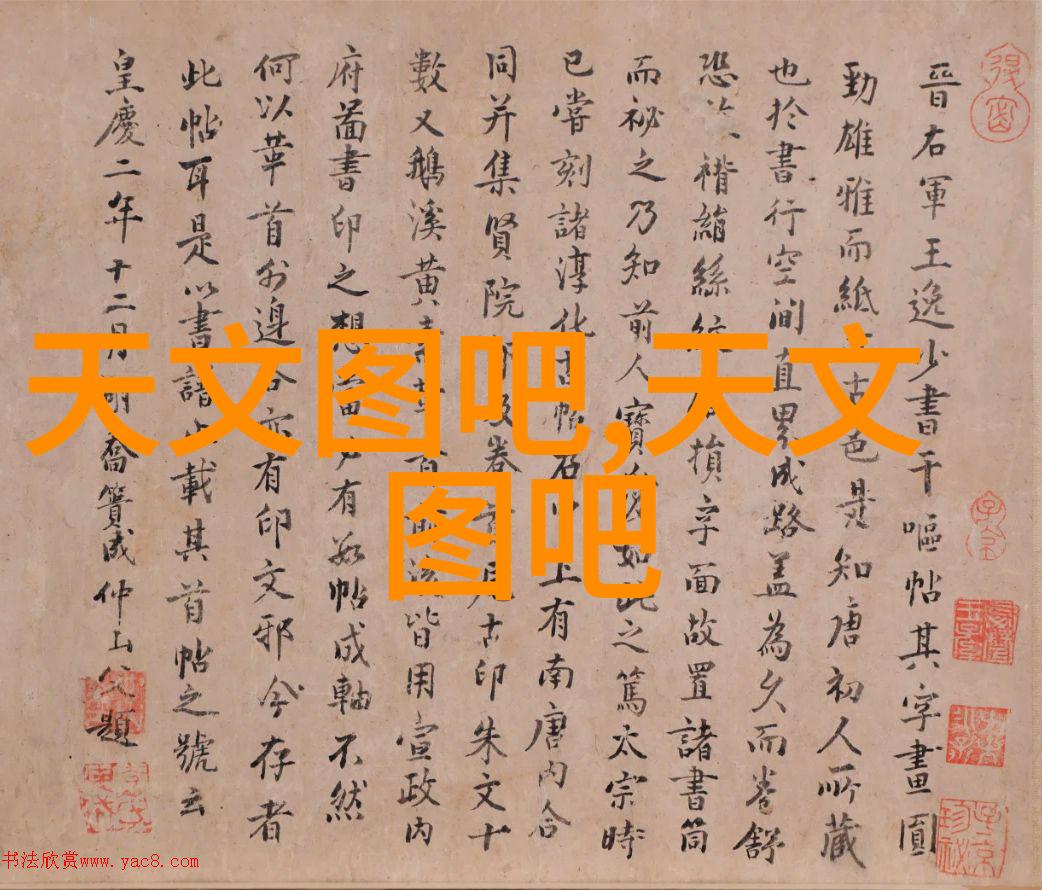 晉右軍王逸少書干嘔帖其字畫圓
勁雄雅而紙古色是知唐初人所藏
也於書行空間直成路蓋為久而卷舒
恐褙縮絲損字面故置諸書筒
而祕之乃知前人寶如此之篤太宗時
已嘗刻諸淳化古帖石上有南唐內合
同并集賢院印及卷古印朱文十
數又鵝溪黃皆用宣政內
府圖書印之想當有數帖成軸不然
何以華首外邊合亦有印文邪今存者
此帖耳是以書譜止載其首帖之號云
皇慶二年十二月朔喬簣成仲山父題
天文图吧,天文
图吧
书法欣赏www.yac8.com